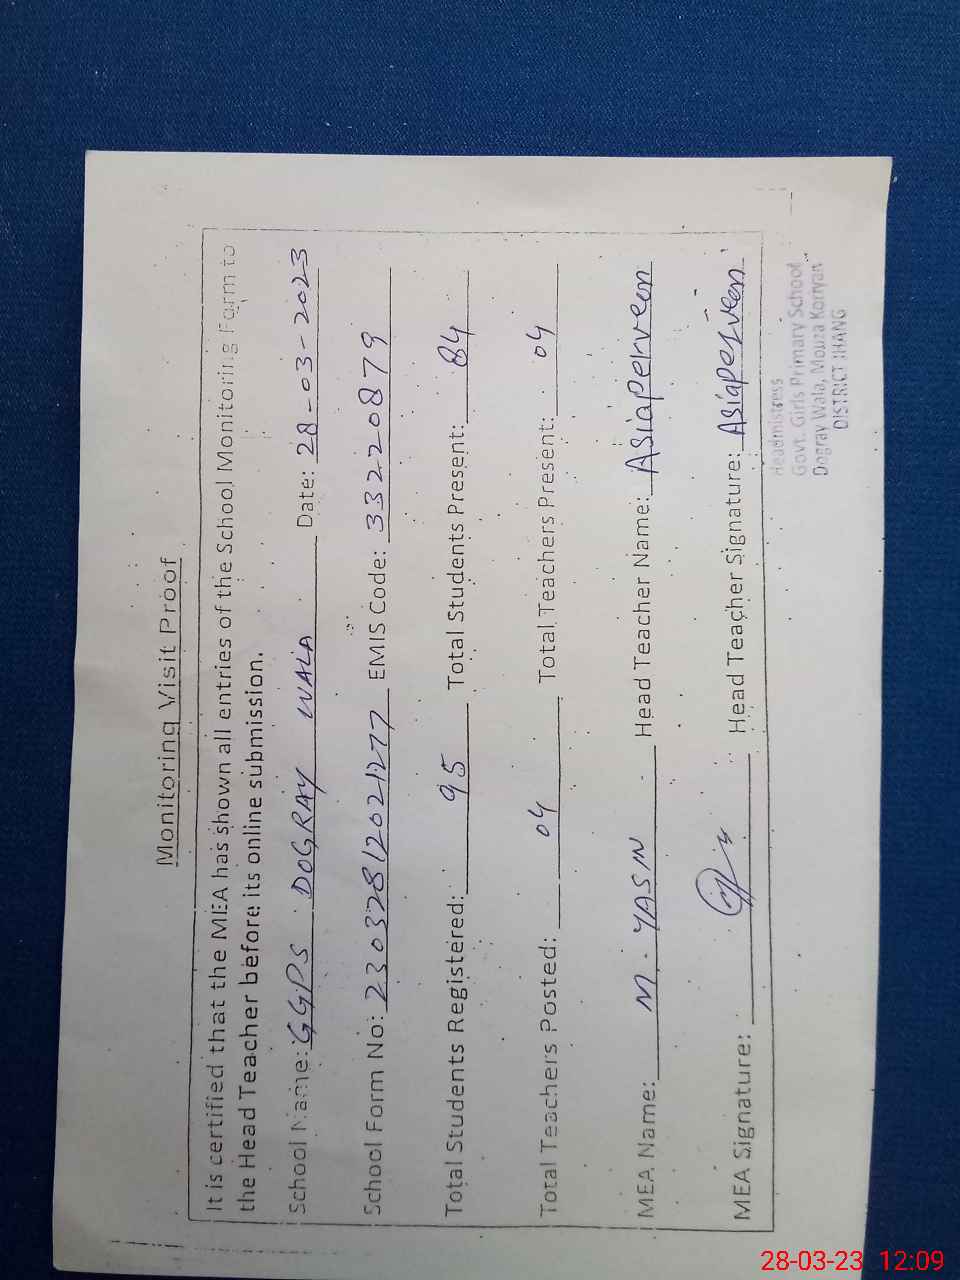 Monitoring Visit Proof
It is certified that the MEA has shown all entries of the School Monitoring Form to
the Head Teacher before its online submission.
School Name: GGPS DOGRAY WALA Date: 28-03-2023
School Form No: 230328120212177 EMIS Code: 33220879
Total Students Registered: 95 Total Students Present: 84
Total Teachers Posted: 04 Total Teachers Present: 04
MEA Name: M. YASIN Head Teacher Name: Asiaperveen
MEA Signature: Head Teacher Signature: Asiaperveen
Headmistress
Govt. Girls Primary School
Dogray Wala, Mouza Koryan
DISTRICT JHANG
28-03-23 12:09